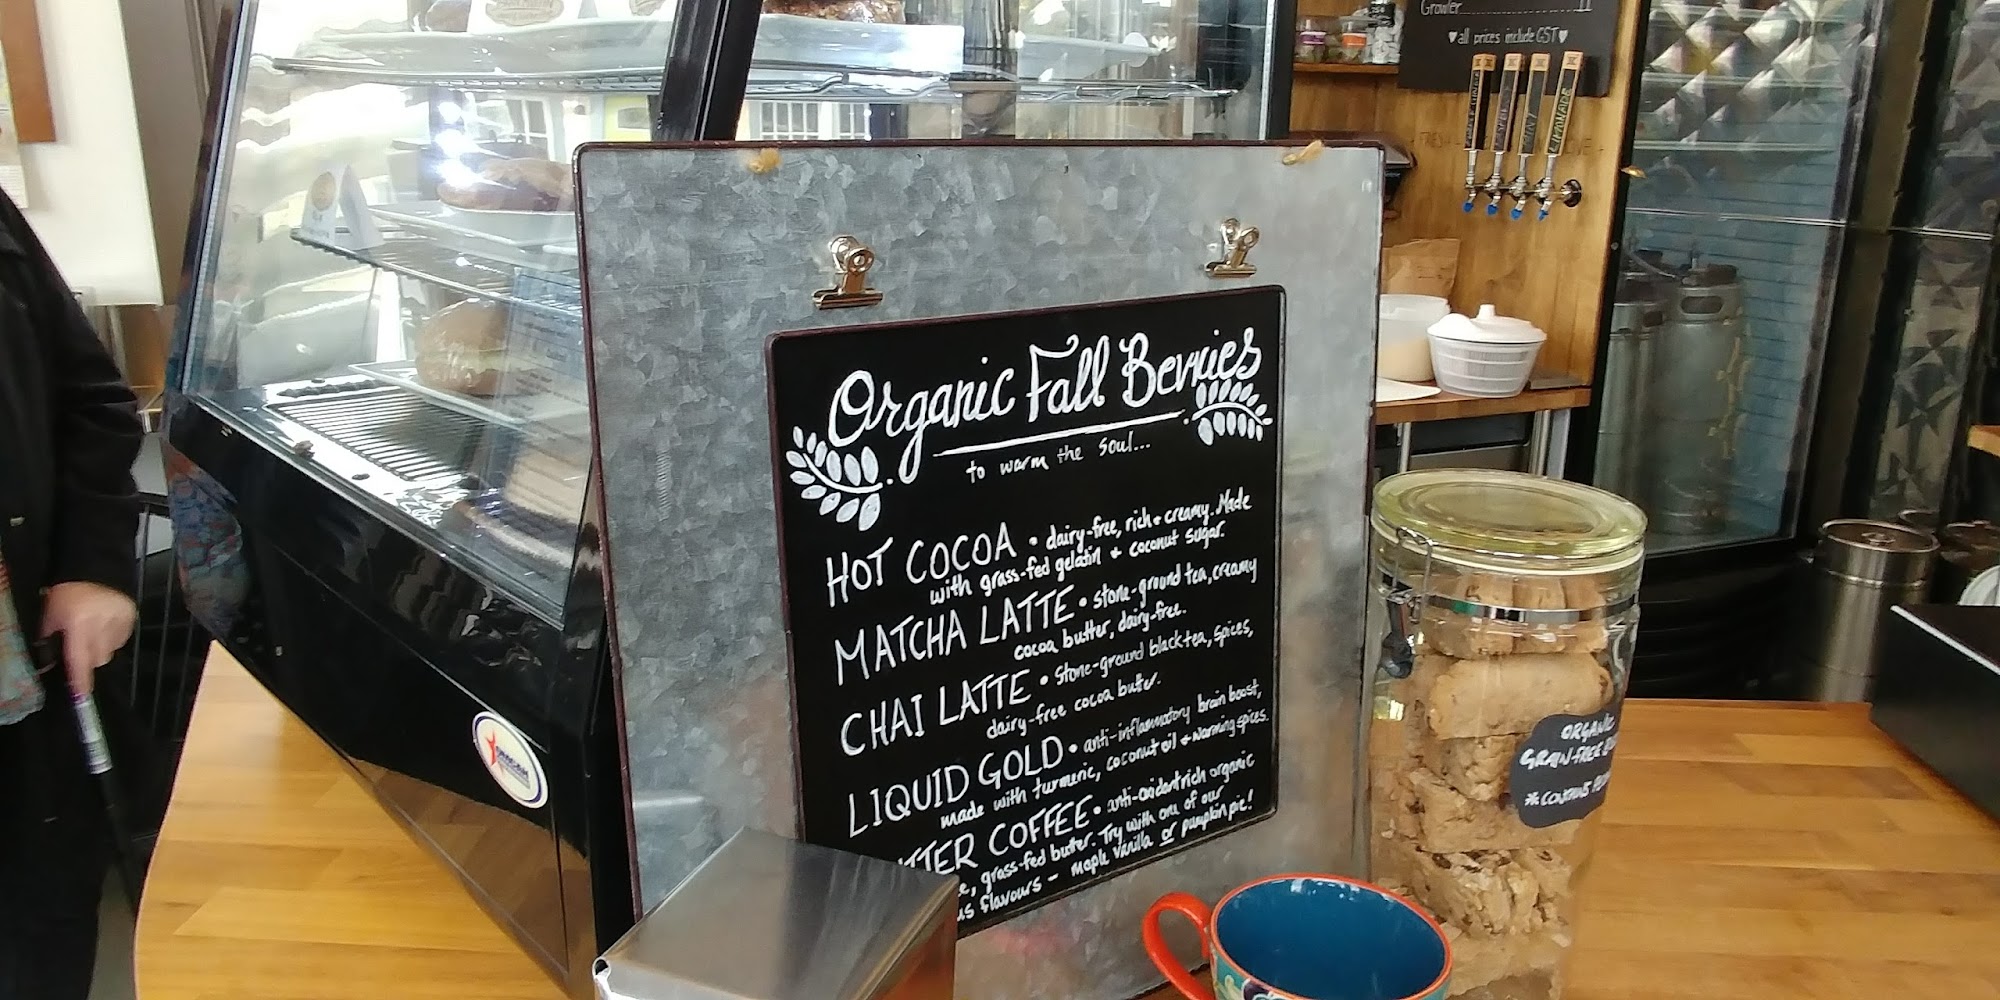 Growler 11
♥all prices include GST♥
LIMONADE
Organic Fall Bevvies
to warm the soul...
HOT COCOA • dairy-free, rich + creamy. Made
with grass-fed gelatin + coconut sugar.
MATCHA LATTE • stone-ground tea, creamy
cocoa butter, dairy-free.
CHAI LATTE • stone-ground black tea, spices,
dairy-free cocoa butter.
LIQUID GOLD • anti-inflammatory brain boost,
made with turmeric, coconut oil + warming spices.
COFFEE • anti-oxidant rich organic
grass-fed butter. Try with one of our
flavours - maple vanilla or pumpkin pie!
ORGANIC
GRAIN-FREE
*CONTAINS